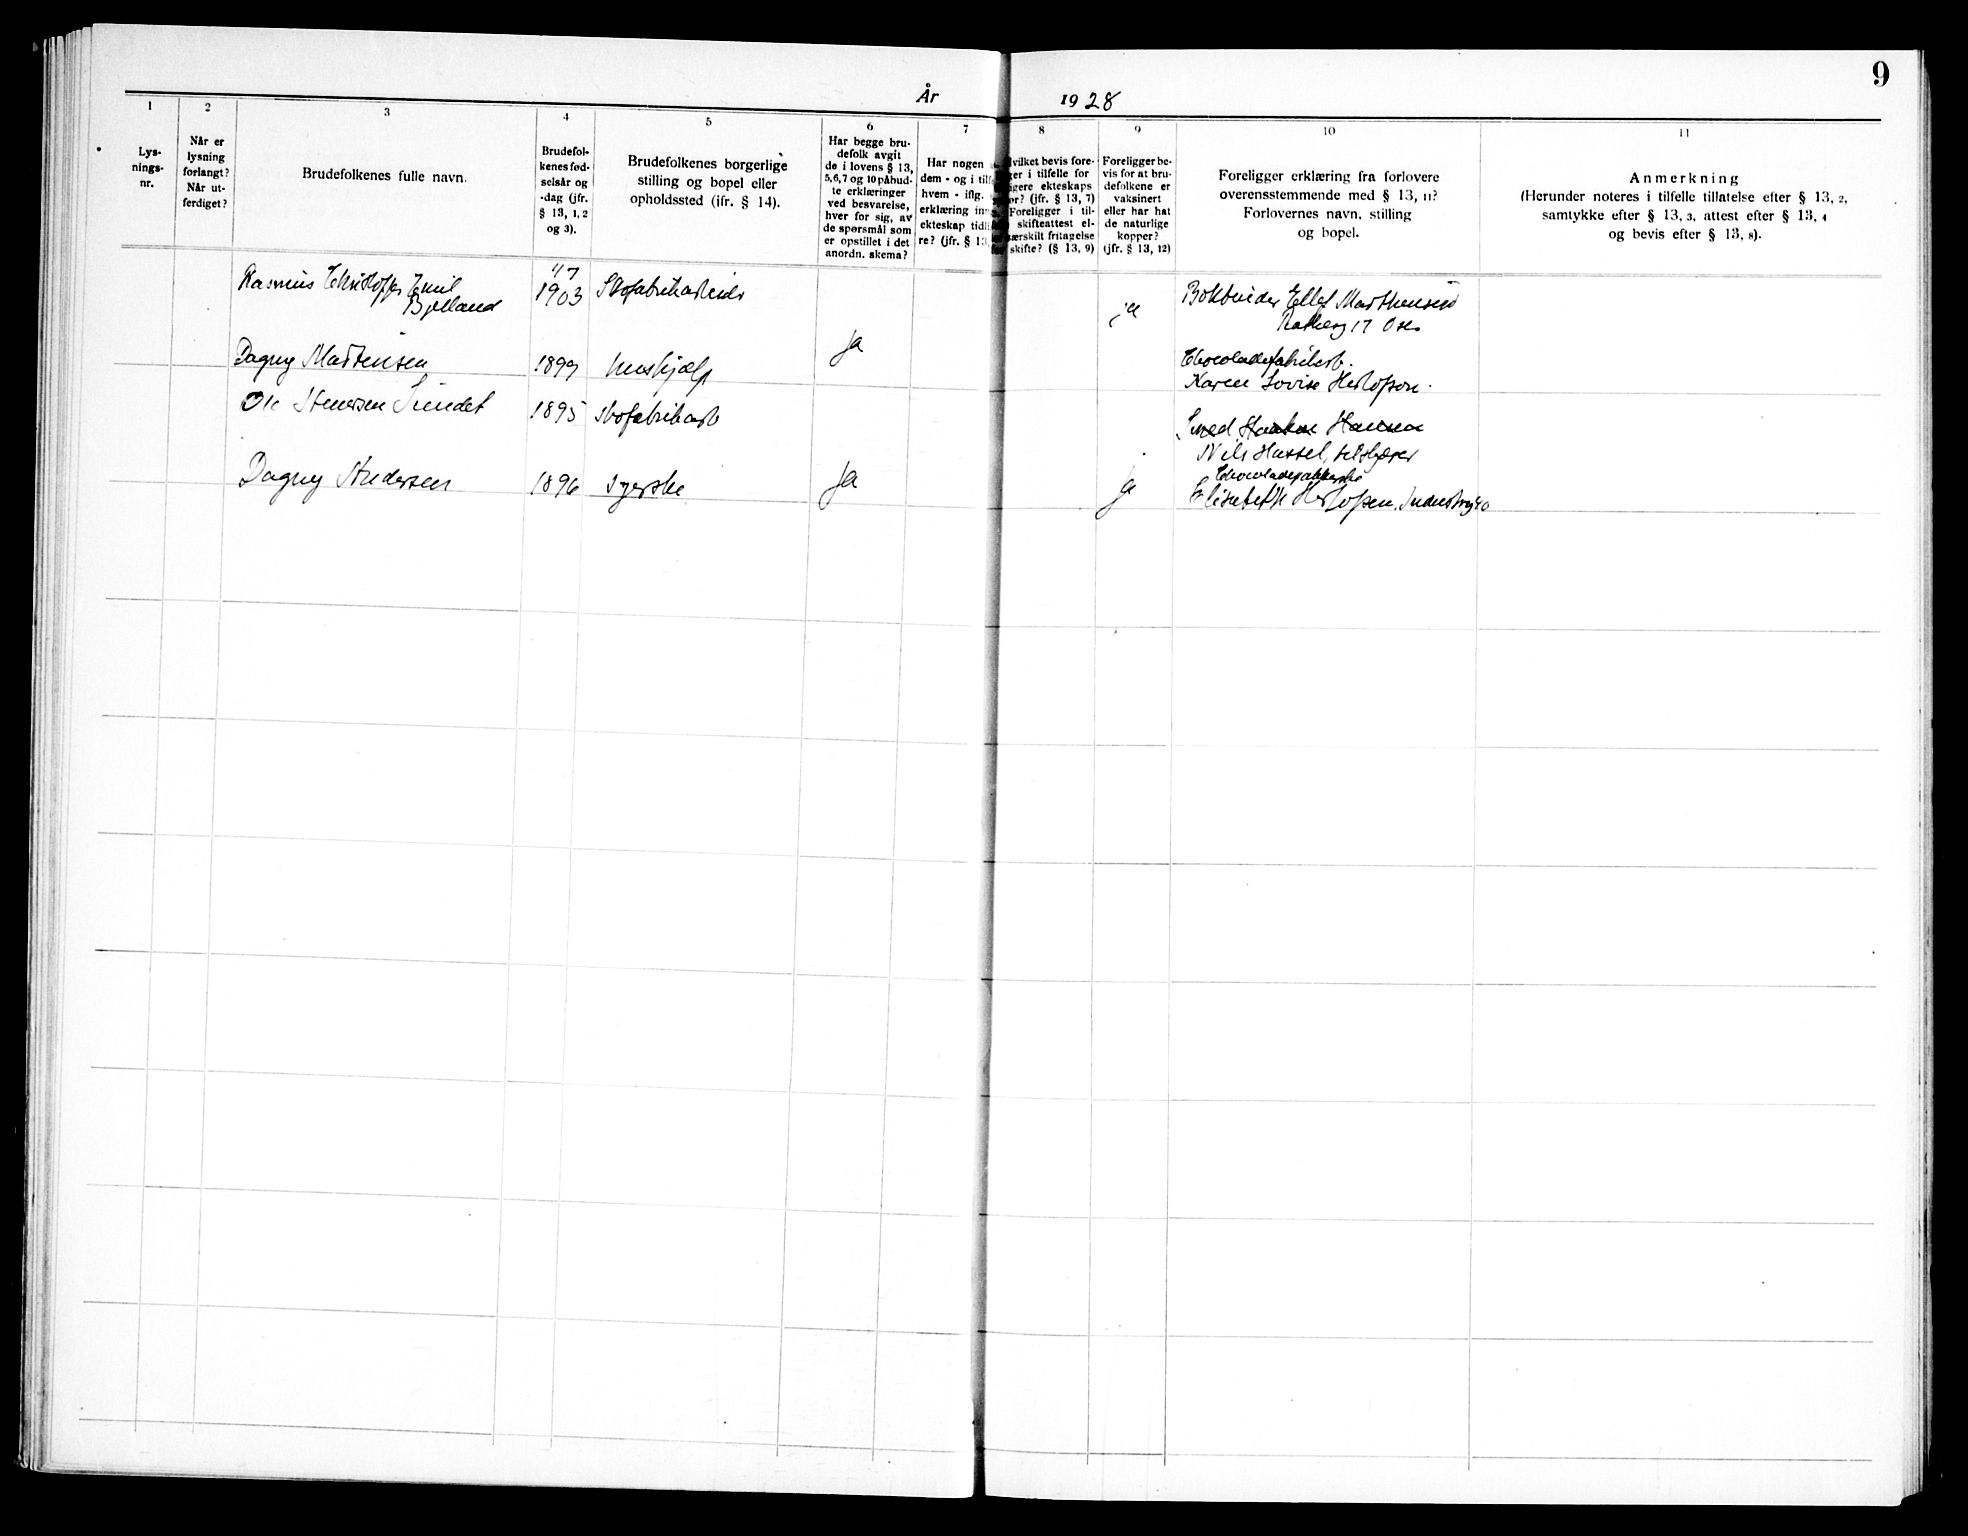 9
År 1928
1 2 3 4 5 6 7 8 9 10 11
Lys-
nings-
nr.
Når er
lysning
forlangt?
Når ut-
ferdiget?
Brudefolkenes fulle navn.
Brudefol-
kenes fød-
selsår og
-dag (jfr.
§ 13, 1, 2
og 3).
Brudefolkenes borgerlige
stilling og bopel eller
opholdssted (jfr. § 14).
Har begge bru-
defolk avgit
de i lovens § 13,
5,6,7 og 10 påbud-
te erklæringer
ved besvarelse,
hver for sig, av
de spørsmål som
er opstillet i det
anordn. skema?
Har nogen
dem - og i tilf
hvem - iflg.
erklæring in
ekteskap tidl
re? (jfr. § 13,
vilket bevis fore-
ger i tilfelle for
igere ekteskaps
or? (jfr. § 13, 7)
Foreligger i til-
skifteattest el-
særskilt fritagelse
skifte? (§ 13, 9)
Foreligger be-
vis for at bru-
defolkene er
vaksinert
eller har hat
de naturlige
kopper?
(jfr. § 13, 12)
Foreligger erklæring fra forlovere
overensstemmende med § 13, 11?
Forlovernes navn, stilling
og bopel.
Anmerkning
(Herunder noteres i tilfelle tillatelse efter § 13, 2,
samtykke efter § 13, 3, attest efter § 13, 4
og bevis efter § 13, 8).
Rasmus Christoffer Emil
Bjelland
1903 Skofabrikarbeider
ja
Bokbinder Ellef Marthensen
17 Oslo
Dagny Martensen 1899 Hushjælp Ja
Chocoladefabrikarb.
Karen Lovise Herlofson.
Ole Stenersen Sundet 1895 Skofabrikarb
Smed Haakon Hansen
Nils Hassel,
Dagny Andersen 1896 Syerske Ja ja
Chocoladepakkerske
Elisabeth Herlofsen, Industrig 40